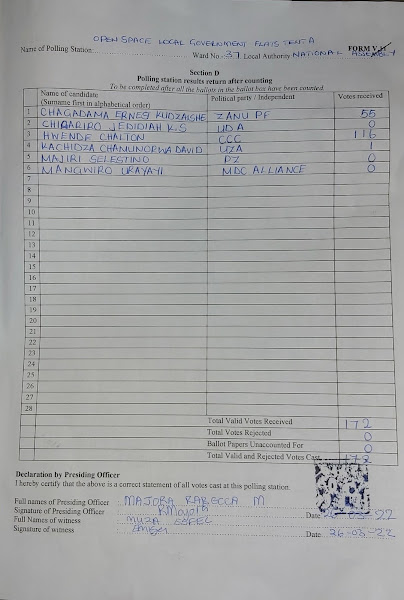 OPEN SPACE LOCAL GOVERNMENT FLATS TENT A
FORM V.11
Name of Polling Station Ward No. 37 Local Authority NATIONAL ASSEMBLY
Section D
Polling station results return after counting
To be completed after all the ballots in the ballot box have been counted
Name of candidate (Surname first in alphabetical order) Political party / Independent Votes received
1 CHAGADAMA ERNEST KUDZAISHE ZANU PF 55
2 CHIGARIRO JEDIDIAH K.S UDA 0
3 HWENDE CHALTON CCC 116
4 KACHIDZA CHANUNORWA DAVID UZA 1
5 MAJIRI SELESTINO PZ 0
6 MANGWIRO URAYAYI MDC ALLIANCE 0
7
8
9
10
11
12
13
14
15
16
17
18
19
20
21
22
23
24
25
26
27
28
Total Valid Votes Received 172
Total Votes Rejected 0
Ballot Papers Unaccounted For 0
Total Valid and Rejected Votes Cast 172
Declaration by Presiding Officer
I hereby certify that the above is a correct statement of all votes cast at this polling station.
Full names of Presiding Officer MAJORA RABECCA M.
Signature of Presiding Officer Date 26-03-22
Full Names of witness
Signature of witness Date 26-03-22